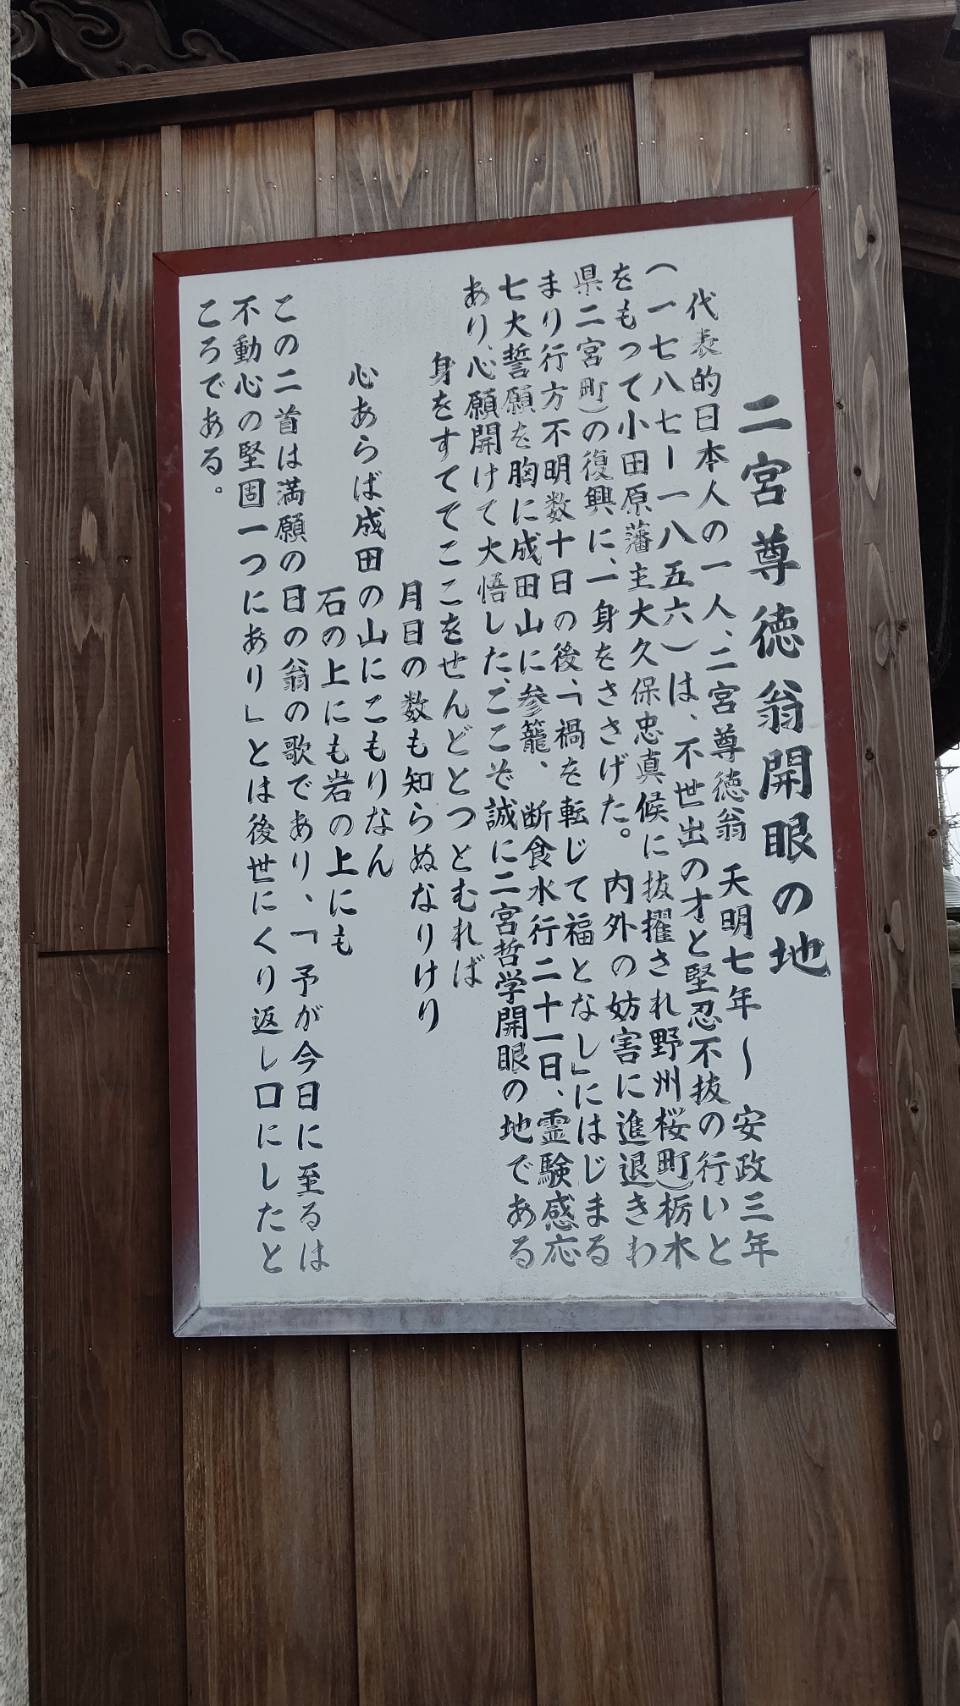 二宮尊徳翁開眼の地
代表的日本人の一人、二宮尊徳翁 天明七年〜安政三年
(一七八七ー一八五六)は、不世出の才と堅忍不抜の行いと
をもって小田原藩主大久保忠真候に抜擢され野州桜町(栃木
県二宮町)の復興に、一身をささげた。内外の妨害に進退きわ
まり行方不明数十日の後、「禍を転じて福となし」にはじまる
七大誓願を胸に成田山に参籠、断食水行二十一日、霊験感応
あり、心願開けて大悟した、ここそ誠に二宮哲学開眼の地である
身をすててここをせんどとつとむれば
月日の数も知らぬなりけり
心あらば成田の山にこもりなん
石の上にも岩の上にも
この二首は満願の日の翁の歌であり、「予が今日に至るは
不動心の堅固一つにあり」とは後世にくり返し口にしたと
ころである。